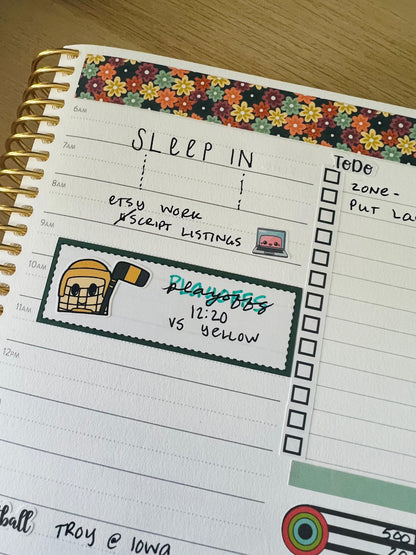 6AM
7AM
8AM
9AM
10AM
11AM
12PM
SLEEP IN
ETSY WORK
SCRIPT LISTINGS
PLAYOFFS
playoffs
12:20
VS YELLOW
TODO
ZONE-
PUT
ball
TROY @ IOWA
500